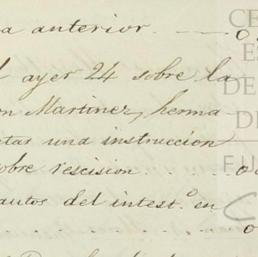 a anterior. 0
l ayer 24 sobre la
on Martinez, herma
tar una instruccion
sobre rescision . . . 0
autos del intest.º en
. . 0
CE
ES
DE
DE
FU
C